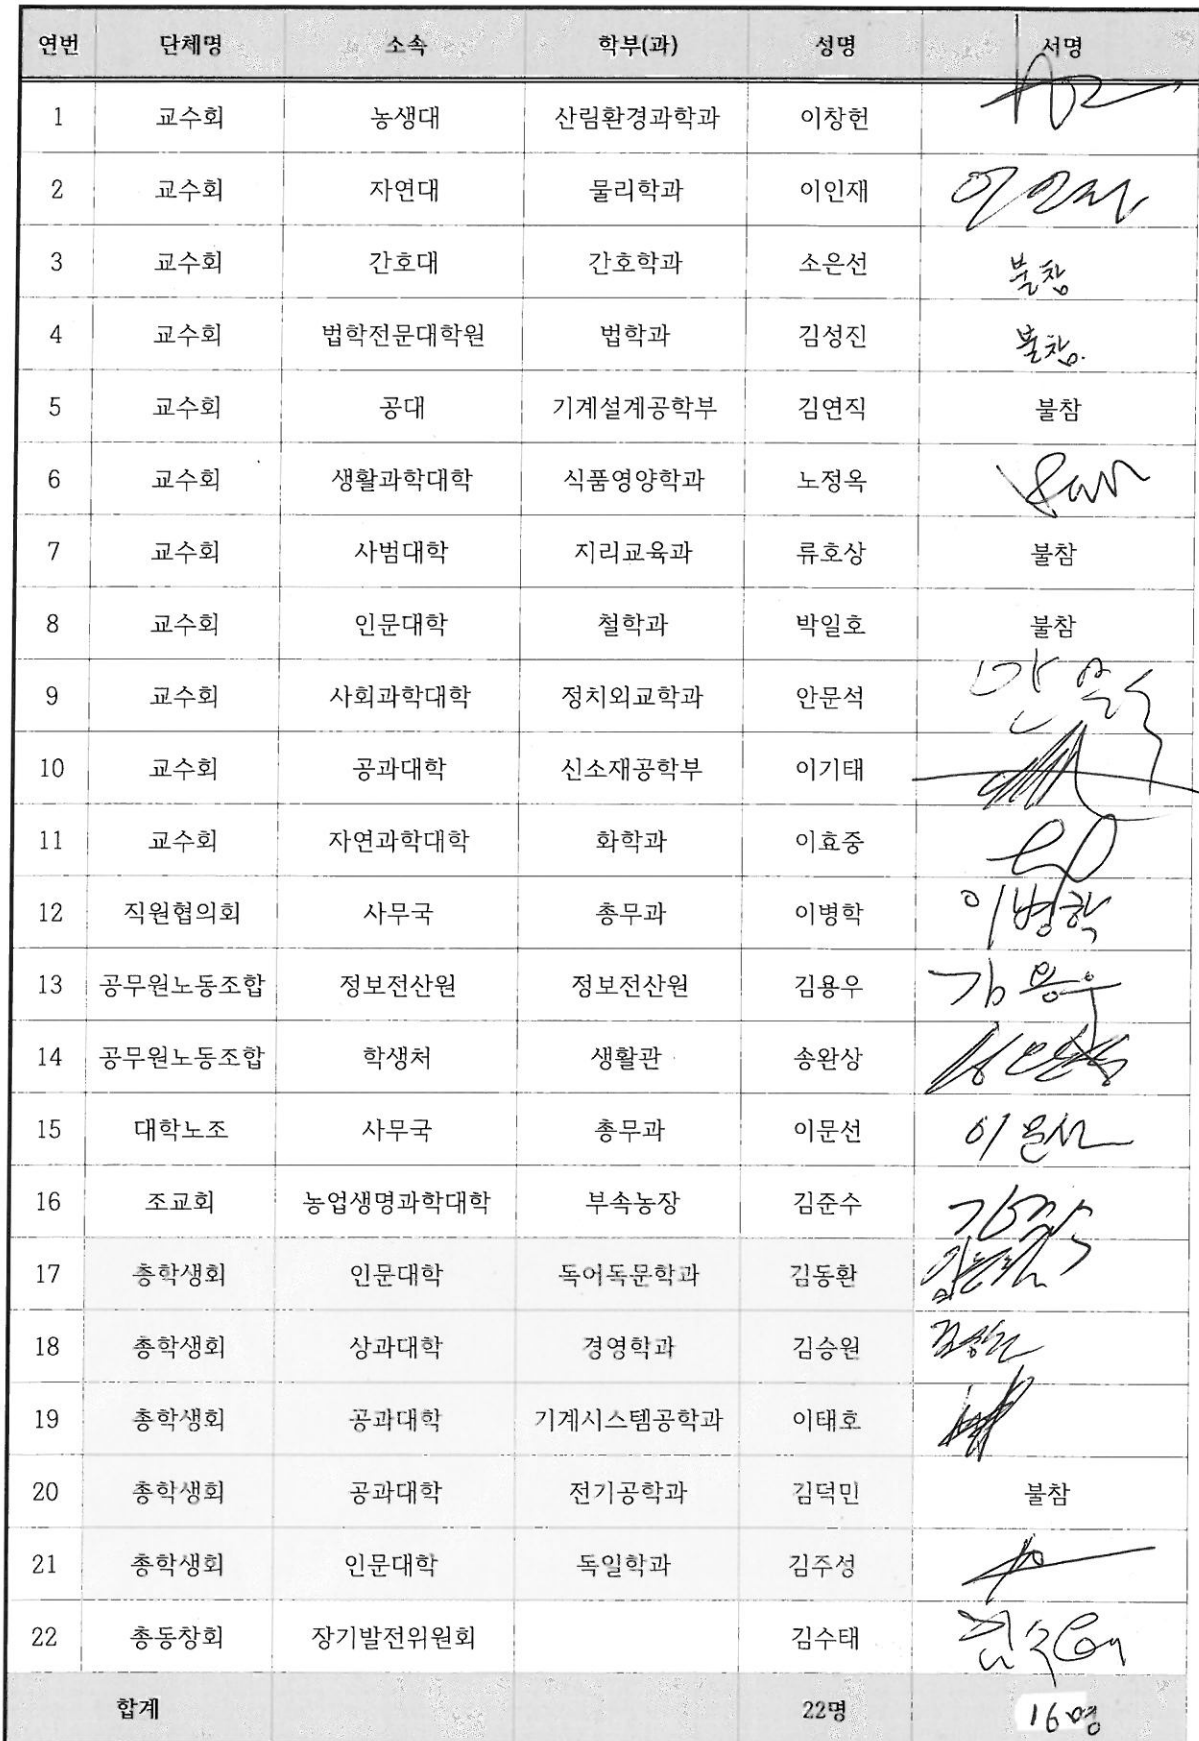 연번 단체명 소속 학부(과) 성명 서명
1 교수회 농생대 산림환경과학과 이창헌
2 교수회 자연대 물리학과 이인재 이인재
3 교수회 간호대 간호학과 소은선 불참
4 교수회 법학전문대학원 법학과 김성진 불참.
5 교수회 공대 기계설계공학부 김연직 불참
6 교수회 생활과학대학 식품영양학과 노정옥
7 교수회 사범대학 지리교육과 류호상 불참
8 교수회 인문대학 철학과 박일호 불참
9 교수회 사회과학대학 정치외교학과 안문석 안문석
10 교수회 공과대학 신소재공학부 이기태
11 교수회 자연과학대학 화학과 이효중
12 직원협의회 사무국 총무과 이병학 이병학
13 공무원노동조합 정보전산원 정보전산원 김용우 김용우
14 공무원노동조합 학생처 생활관 송완상
15 대학노조 사무국 총무과 이문선 이문선
16 조교회 농업생명과학대학 부속농장 김준수 김준수
17 총학생회 인문대학 독어독문학과 김동환
18 총학생회 상과대학 경영학과 김승원 김승원
19 총학생회 공과대학 기계시스템공학과 이태호
20 총학생회 공과대학 전기공학과 김덕민 불참
21 총학생회 인문대학 독일학과 김주성
22 총동창회 장기발전위원회 김수태 김수태
합계 22명 16명